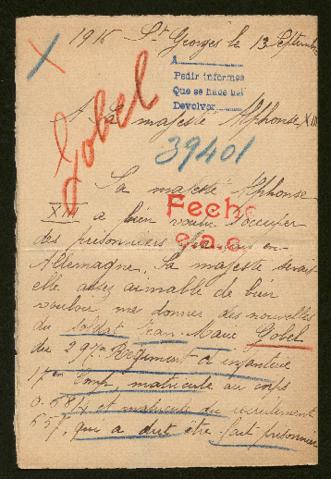 1915 St Georges le 13 Septembre
A
Pedir informes
Que se hace bei
Devolver
Gobel
A Sa majesté Alphonse XIII
39401
Sa majesté Alphonse
XIII a bien voulu s'occuper
Fecho
des prisonniers en
e.a.c.
Allemagne. Sa majesté serait
elle assez aimable de bien
vouloir me donner des nouvelles
du soldat Jean Marie Gobel
du 297e Régiment d'infanterie
17em Comp, matricule au corps
0.584 et matricule du recrutement
557, qui a dut être fait prisonnier